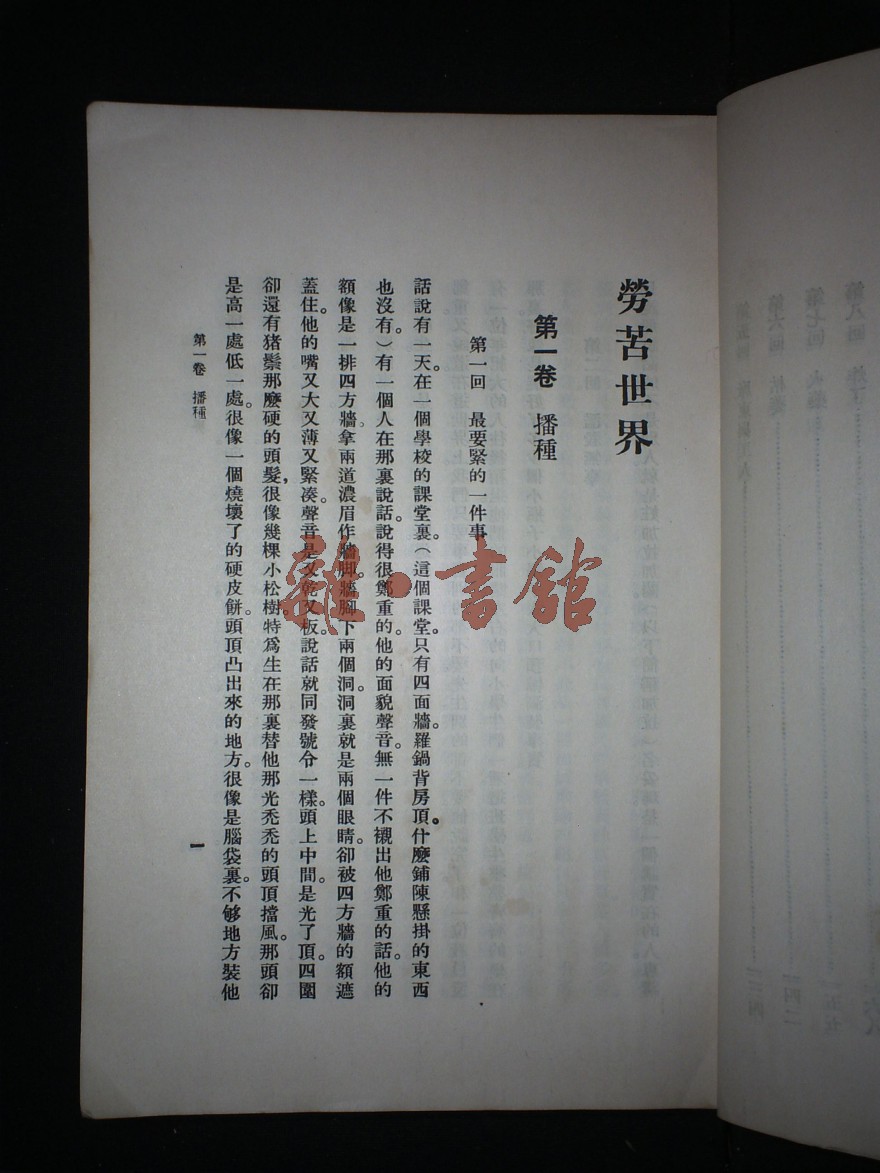 勞苦世界
第一卷 播種
第一回 最要緊的一件事
話說有一天。在一個學校的課堂裏。(這個課堂。只有四面牆。羅鍋背房頂。什麼鋪陳懸掛的東西
也沒有。)有一個人在那裏說話。說得很鄭重的。他的面貌聲音。無一件不襯出他鄭重的話。他的
額像是一排四方牆。拿兩道濃眉作牆脚。牆腳下兩個洞。洞裏就是兩個眼睛。卻被四方牆的額遮
蓋住。他的嘴又大又薄又緊凑。聲音是又乾又板。說話就同發號令一樣。頭上中間。是光了頂。四圍
卻還有猪鬃那麼硬的頭髮,很像幾棵小松樹。特爲生在那裏替他那光禿禿的頭頂擋風。那頭卻
是高一處低一處。很像一個燒壞了的硬皮餅。頭頂凸出來的地方。很像是腦袋裏。不够地方裝他
第一卷 播種
一
雜·書館